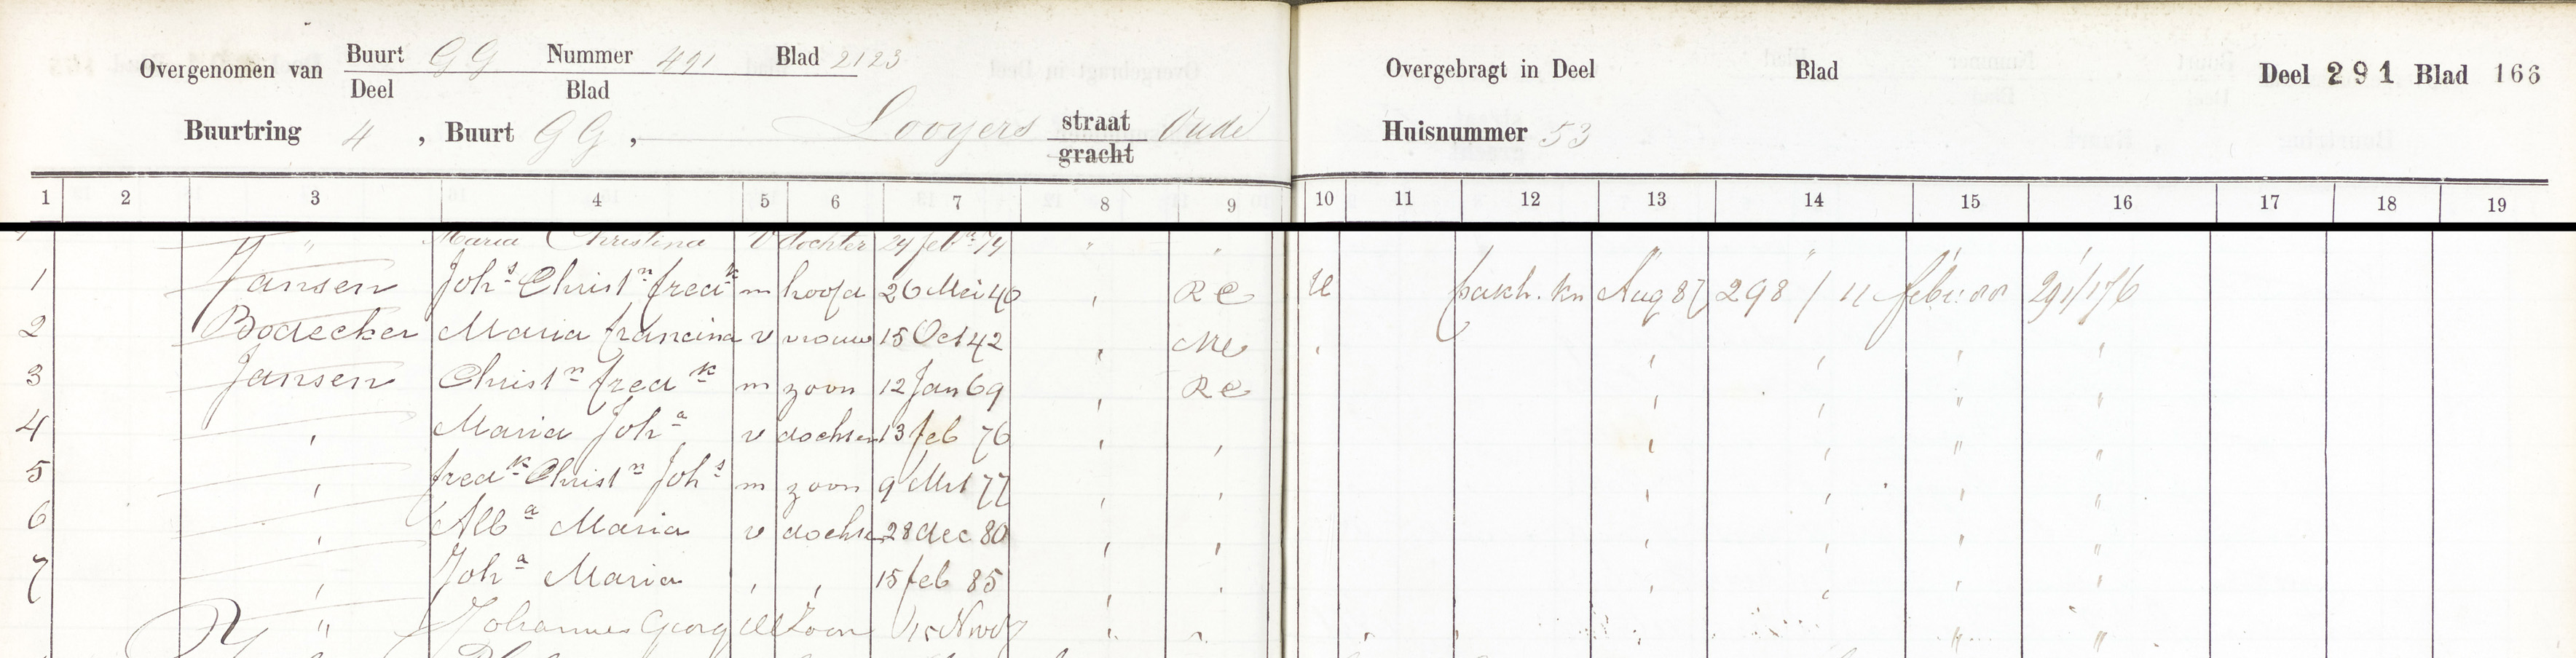 Overgenomen van Buurt GG Nummer 491 Blad 2123
Deel Blad
Overgebragt in Deel Blad Deel 291 Blad 166
Buurtring 4, Buurt GG, Looyers straat Oude
gracht
Huisnummer 53
1 2 3 4 5 6 7 8 9 10 11 12 13 14 15 16 17 18 19
" Maria Christina v dochter 24 feb 79 " "
1 Jansen Johs Christn fredk m hoofd 26 Mei 40 , Re Ue Aug 87 298 / 11 291/176
2 Bodecker Maria francina v vrouw 15 Oct 42 , ,
3 Jansen Christn fredk m zoon 12 Jan 69 , Re
4 , Maria Joha v dochter 13 feb 76 , ,
5 , fredk Christn Johs m zoon 9 Mrt 77 , ,
6 , Alba Maria v dochter 28 dec 80 , ,
7 , Joha Maria , , 15 feb 85 , ,
" Johannes Georg M Zoon